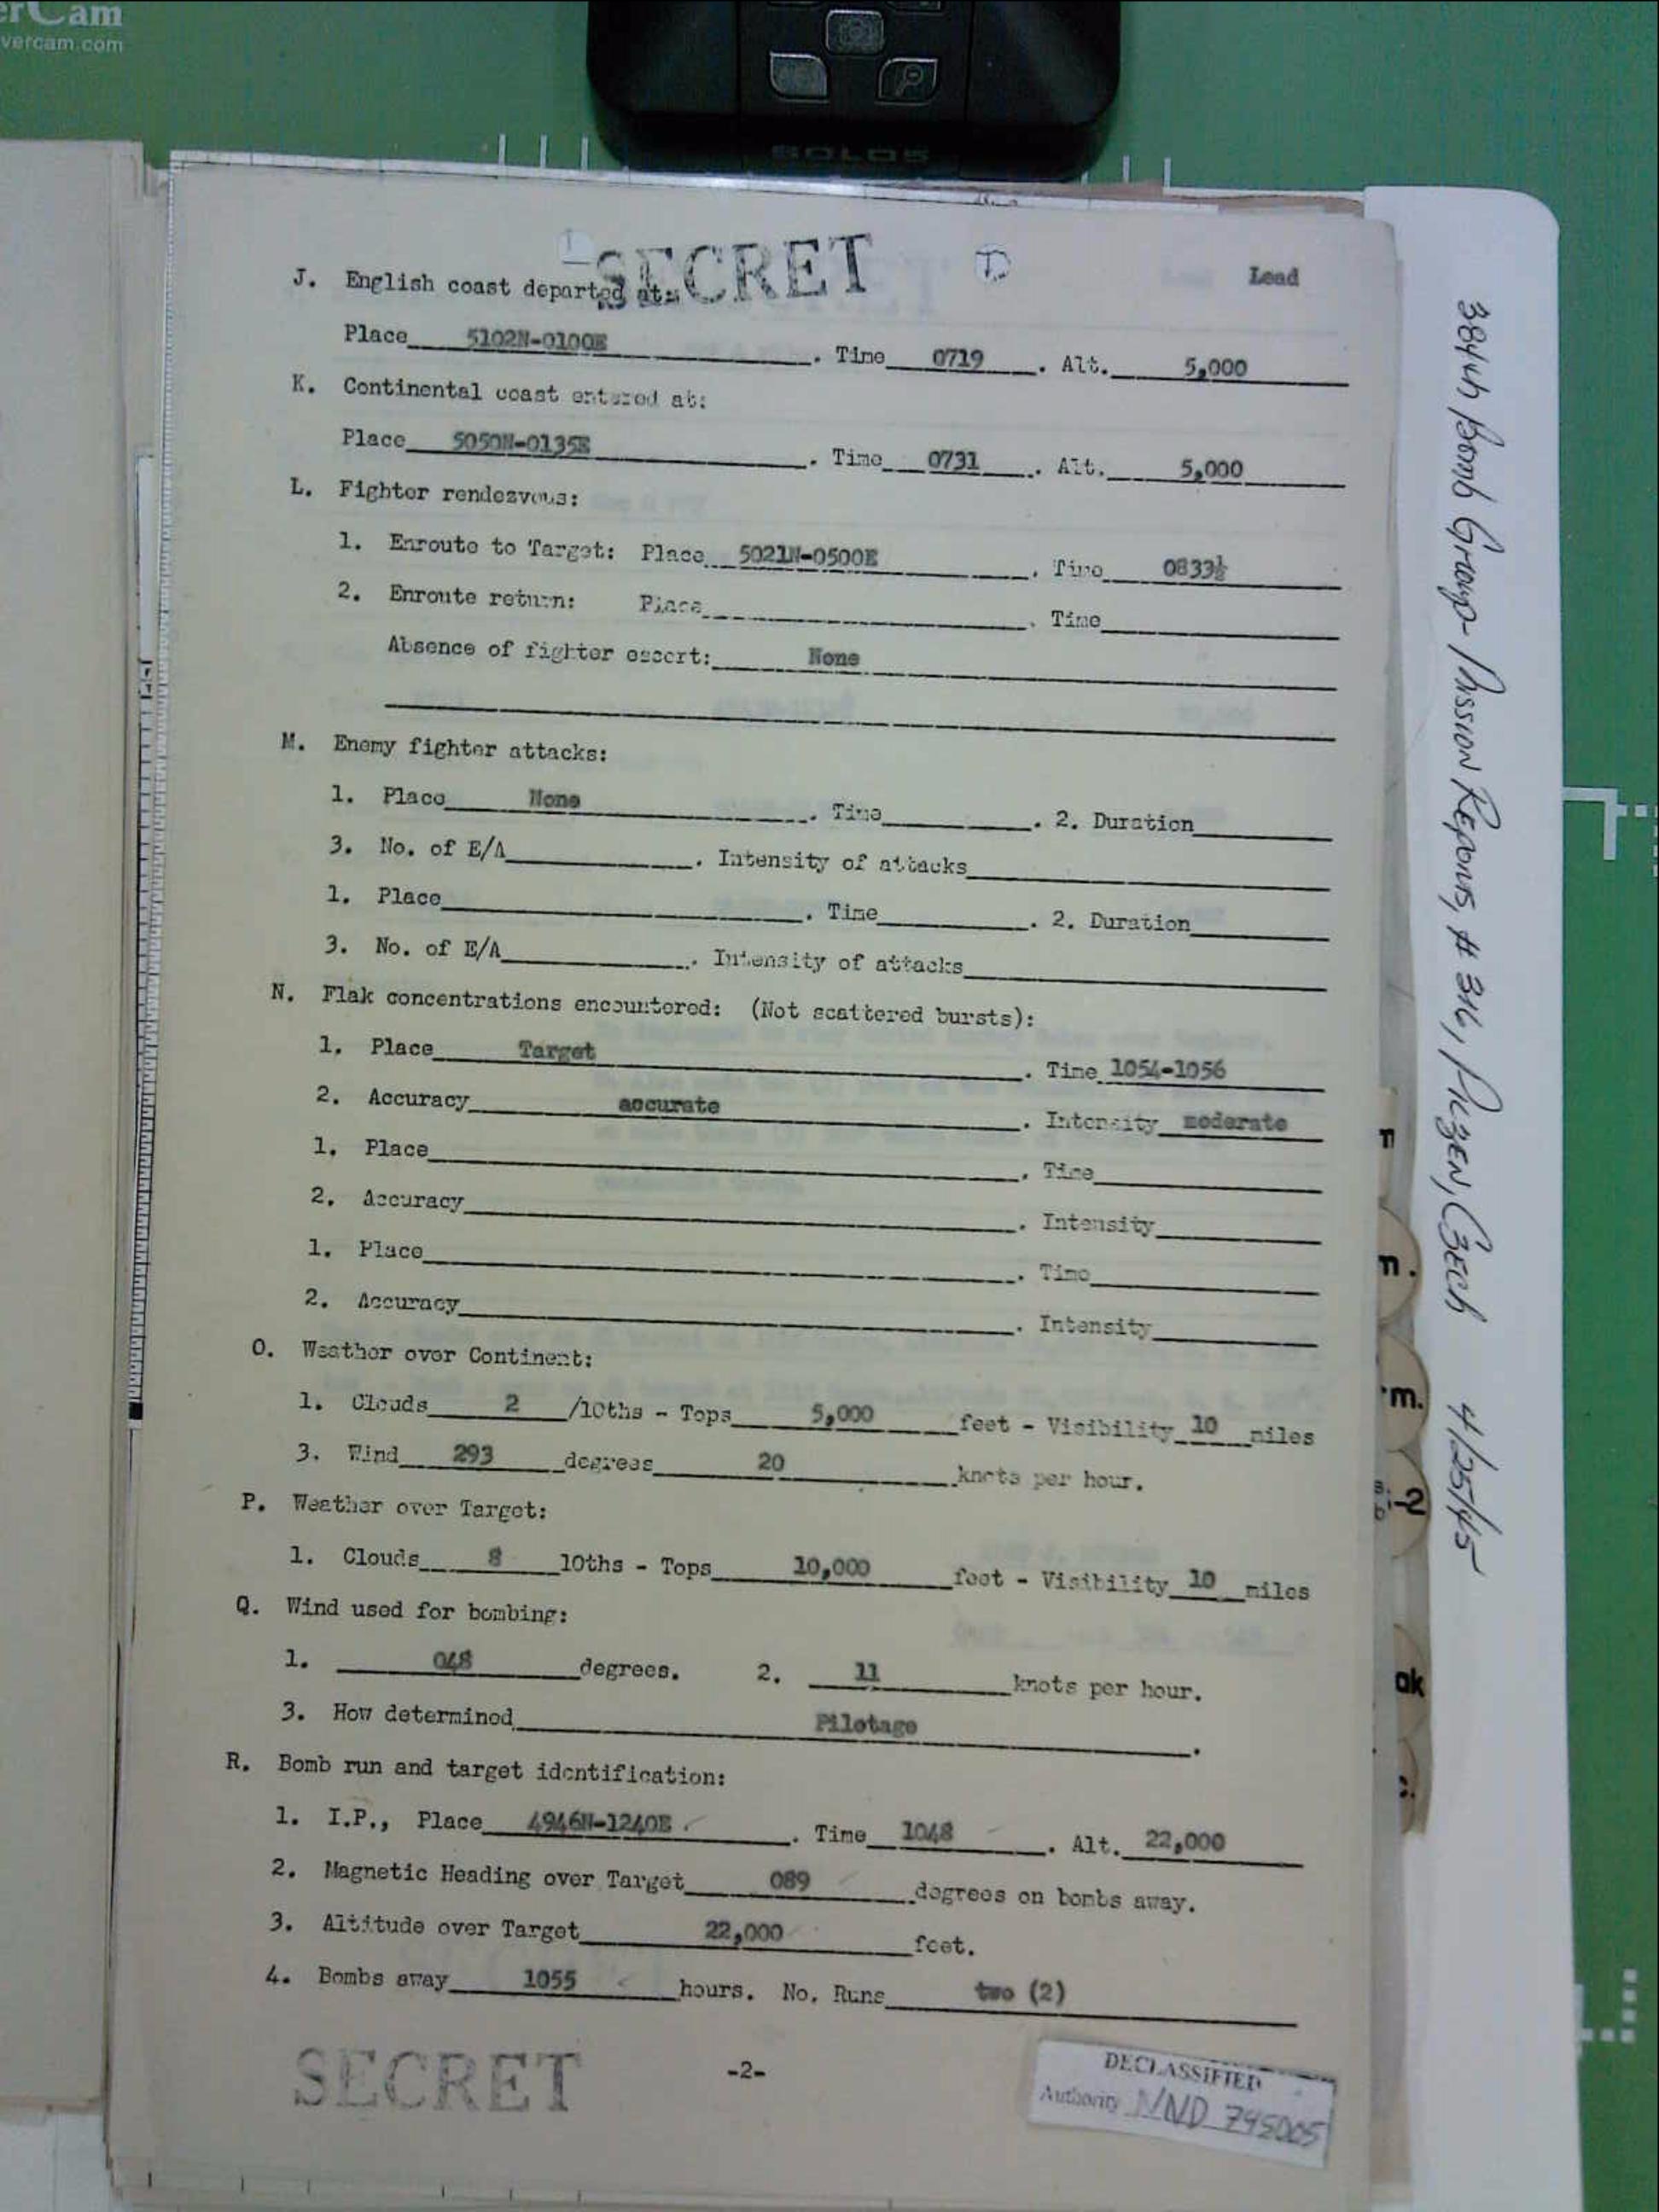 erCam
vercam.com
SOLO5
SECRET
Lead
J. English coast departed at:
Place 5102N-0100E . Time 0719 . Alt. 5,000
K. Continental coast entered at:
Place 5050N-0135E . Time 0731 . Alt. 5,000
L. Fighter rendezvous:
1. Enroute to Target: Place 5021N-0500E . Time 0833½
2. Enroute return: Place . Time
Absence of fighter escort: None
M. Enemy fighter attacks:
1. Place None . Time . 2. Duration
3. No. of E/A . Intensity of attacks
1. Place . Time . 2. Duration
3. No. of E/A . Intensity of attacks
N. Flak concentrations encountered: (Not scattered bursts):
1. Place Target . Time 1054-1056
2. Accuracy accurate . Intensity moderate
1. Place . Time
2. Accuracy . Intensity
1. Place . Time
2. Accuracy . Intensity
O. Weather over Continent:
1. Clouds 2 /10ths - Tops 5,000 feet - Visibility 10 miles
3. Wind 293 degrees 20 knots per hour.
P. Weather over Target:
1. Clouds 8 10ths - Tops 10,000 feet - Visibility 10 miles
Q. Wind used for bombing:
1. 048 degrees. 2. 11 knots per hour.
3. How determined Pilotage .
R. Bomb run and target identification:
1. I.P., Place 4946N-1240E . Time 1048 . Alt. 22,000
2. Magnetic Heading over Target 089 degrees on bombs away.
3. Altitude over Target 22,000 feet.
4. Bombs away 1055 hours. No. Runs two (2)
SECRET
-2-
DECLASSIFIED
Authority NND 745005
384th Bomb Group - Mission Reports, # 316, Pilzen, Czech 4/25/45
n
m.
m.
-2
ak